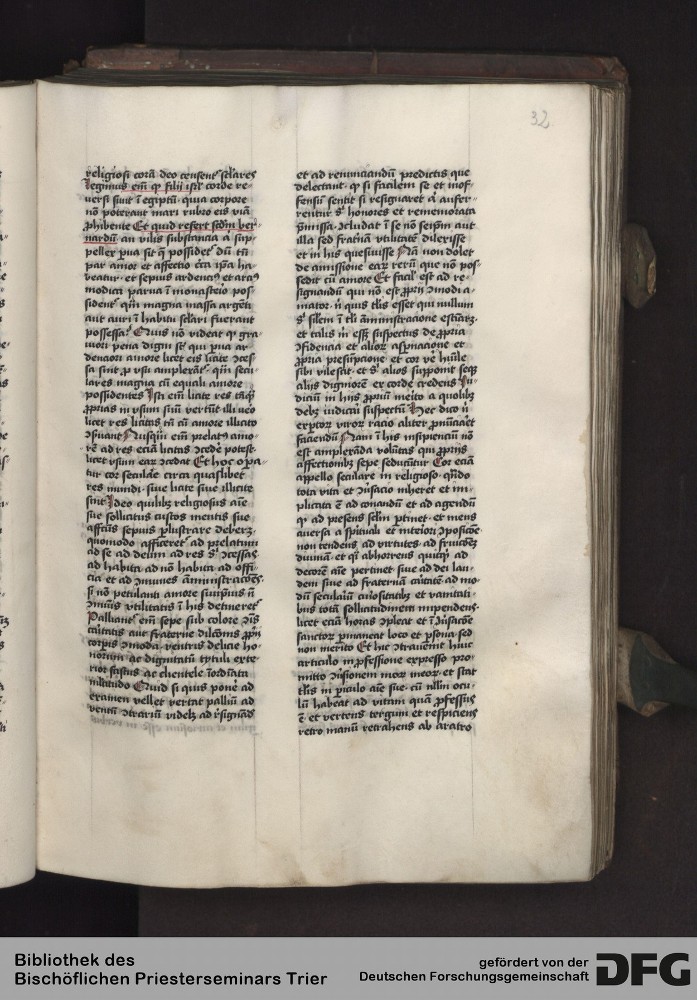 32
religiosi corā deo censentʳ sclares
Legimus em̄ ꝙ filii isrl corde re-
uersi sunt ī egiptū· quia corpore
nō poterant mari rubro eis viā
ꝓhibente Et quid refert scdm ber-
nardū an vilis substancia a sup-
peller ꝑua sit qͣ possidetʳ dū tn̄
par amor et affectio circa ip̄a ha-
beatur· et sepius ardencius et araciꝰ
modica parua ī monasterio pos-
sidentʳ qm̄ magna massa argēti
aut auri ī habitu sclari fuerant
possessa· Quis nō videat qͣ gra-
uiori pena digni st̄ qui ꝑua ar-
denciori amore licet eis licite ꝯces
sa sint ꝓ vsu amplexātʳ qm̄ secu-
lares magna cū equali amore
possidentes Isti em̄ licite res tāqͣ
ꝓprias in vsum suū vertūt illi uero
licet res licitas tn̄ cū amore illicito
Nusqͣm em̄ prelatꝰ amo-
rē ad res eciā licitas ꝯcedē potest
licet vsum eaꝝ ꝯcedat Et hoc oꝑa-
tur cor seculāe circa quaslibet
res mundi· siue licite siue illicite
sint Ideo quilibꝫ religiosus aīe
sue sollicitus custos mentis sue
affectus sepius ꝑlustrare deberꝫ·
quomodo afficeretʳ ad prelatum
ad se ad deum ad res sʳ ꝯcessas
ad habita ad nō habita ad offi-
cia et ad īmunes am̄inistracōes·
si nō petulanti amore
vtilitatis ī his detineretʳ
Palliantʳ em̄ sepe sub colore
caritatis aut fraterne dilcōnis ꝓpͥi
corpis ꝯmoda· ventris delicie ho-
norum ac dignitatū tytuli exte-
rior fastus ac clientele īordīata
multitudo Quid si quis ponēꝰ ad
examen vellet vertat palliū ad
ventū ꝯtrariū videlꝫ ad rͤsignādū
et ad renunciandū predictis que
delectant· ꝙ si facilem se et inof-
fensū sentit si resignaretʳ a auferr-
rentur sʳ honores et rememorata
ꝑmissa· ꝯcludat ī se nō seipm̄ aut
illa sed fratnā vtilitatē dilexisse
et in his quesiuisse Nā non dolet
de amissione eaꝝ rerū que nō pos-
sedit cū amore Et facilʳ est ad re-
signandū qui nō est ꝓprii ꝯmodi a-
mator· n̄ quis tlis esset qui nullum
sʳ silem ī tli am̄inistracione estīarꝫ·
et talis in essꝫ suspectus de ꝓpria
ꝯfidencia et alioꝝ aspnacione et
ꝓpria presūpcione· et cor vē hūile
sibi vilescat· et sʳ alios supponit seqꝫ
aliis digniorē ex corde credens Iu-
dicium in his ꝓpriū merito a quolibꝫ
debꝫ iudicari suspectū Hec dico n̄
expertoꝝ viroꝝ racio aliter ꝓnūciaūt
faciendū Nam ī his insipienciū nō
est amplexāda volūtas qui ꝓpriis
affectionibꝫ sepe seducūtur Cor eciā
appello seculare in religioso· qn̄do
tota vita et ꝯūsacio inheret et im-
plicita ē ad conandū et ad agendū
qͣ ad presens sclm ptinet· et mens
auersa a spirituali et interiori ꝯposicōe
non tendens ad virtutes· ad fruicōeꝫ
diuinā· et qͣ abhorrens quicqͥ ad
decorē aīe pertinet siue ad dei lau-
dem siue ad fraternā caritatē ad mo-
dū seculariū curiositatibꝫ et vanitati-
bus totā sollicitudinem impendens·
licet eciā horas ꝯpleat et ī ꝯūsacōe
sanctoꝝ ꝑmaneat loco et ꝑsona sed
non merito Et hic ꝯtrauenit huic
articulo in ꝓfessione expresso pro
mitto ꝯūsionem moꝝ meoꝝ· et stat
tlis in ꝑiculo aīe sue· cū nllm̄ ocu-
lū habeat ad vitam quā ꝓfessus
ē· et vertens tergum et respiciens
retro manū retrahens ab aratro
Bibliothek des
Bischöflichen Priesterseminars Trier
gefördert von der
Deutschen Forschungsgemeinschaft
DFG